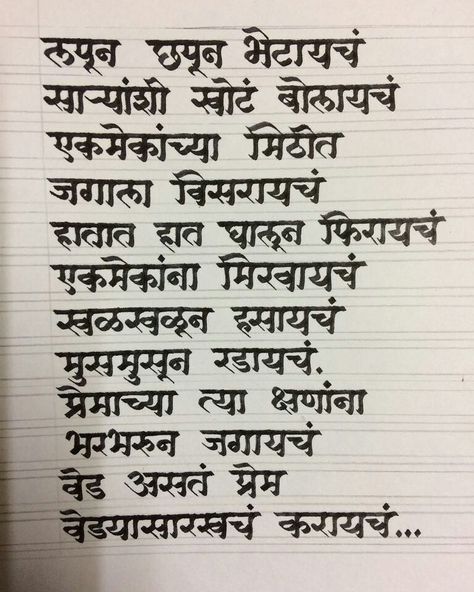 लपून छपून भेटायचं
साऱ्यांशी खोटं बोलायचं
एकमेकांच्या मिठीत
जगाला विसरायचं
हातात हात घालून फिरायचं
एकमेकांना मिरवायचं
खळखळून हसायचं
मुसमुसून रडायचं.
प्रेमाच्या त्या क्षणांना
भरभरुन जगायचं
वेड असतं प्रेम
वेडयासारखचं करायचं...